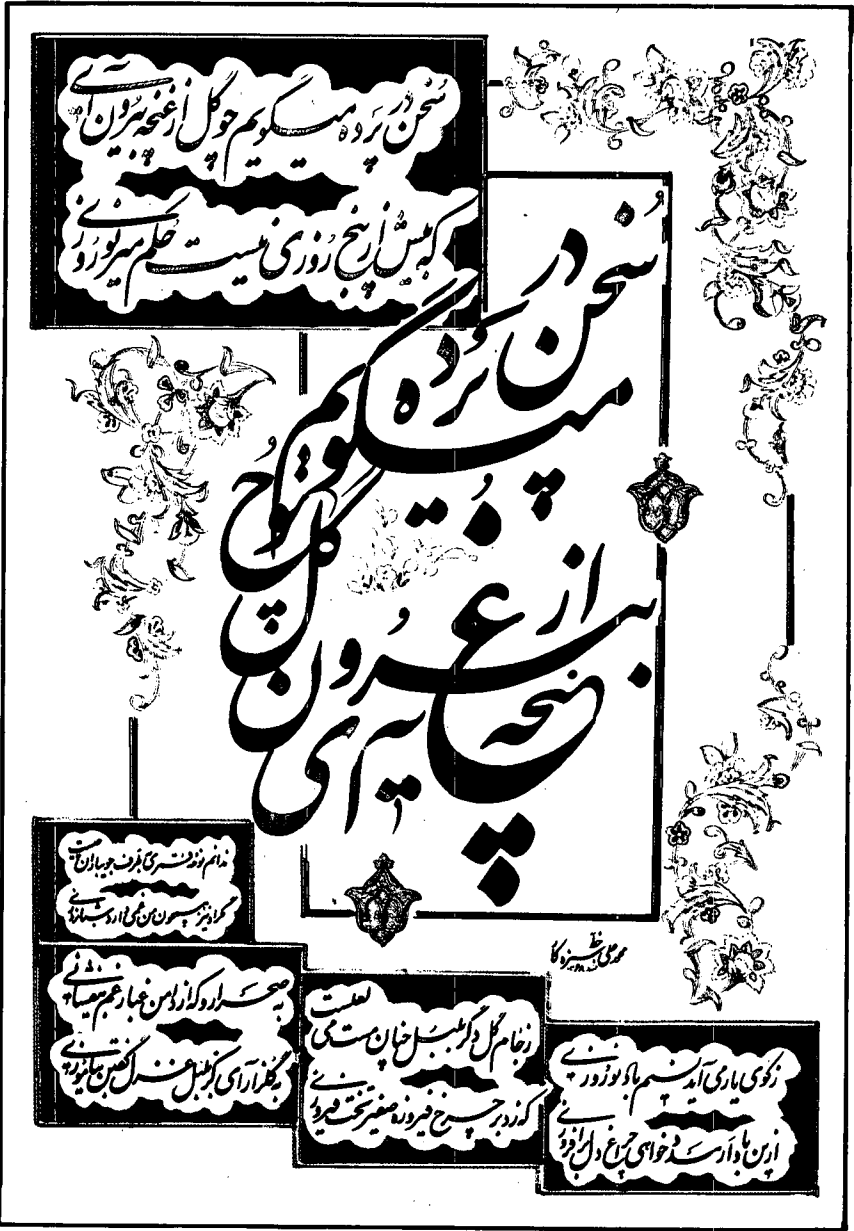 سُخن در پَرده میگویم چو گل از غنچه بیرون آی
که بیش از پنج روزی نیست حکم میر نوروزی
سُخن در
پَرده
میگویم
چو
گل
از
غنچه
بیرون
آی
ندانم نوحه قمری بطرف جویباران چیست
مگر او نیز همچون من غمی دارد شبانروزی
به صحرا رو که از دامن غبار غم بیفشانی
به گلزار آی کز بلبل غزل گفتن بیاموزی
ز جام گل دگر بلبل چنان مست می لعلست
که زد بر چرخ فیروزه صفیر تخت فیروزی
ز کوی یار می آید نسیم باد نوروزی
ازین باد ار مدد خواهی چراغ دل برافروزی
محمدعلی